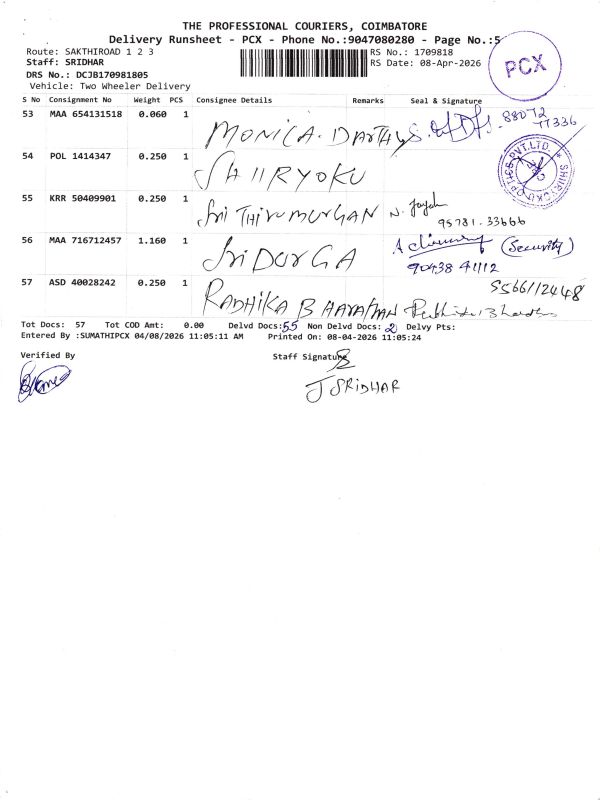 THE PROFESSIONAL COURIERS, COIMBATORE
Delivery Runsheet - PCX - Phone No.:9047080280 - Page No.:5
Route: SAKTHIROAD 1 2 3 RS No.: 1709818
Staff: SRIDHAR RS Date: 08-Apr-2026
DRS No.: DCJB170981805
Vehicle: Two Wheeler Delivery
PCX
S No Consignment No Weight PCS Consignee Details Remarks Seal & Signature
53 MAA 654131518 0.060 1 MONICA. 88072
77336
54 POL 1414347 0.250 1 SHIIRYOKU
55 KRR 50409901 0.250 1 Sri THIRUMURGAN
95781.33666
56 MAA 716712457 1.160 1 Sri DURGA (Security)
90438 41112
57 ASD 40028242 0.250 1 RADHIKA BHARATHAN
9566112448
Tot Docs: 57 Tot COD Amt: 0.00 Delvd Docs: 55 Non Delvd Docs: 2 Delvy Pts:
Entered By :SUMATHIPCX 04/08/2026 11:05:11 AM Printed On: 08-04-2026 11:05:24
Verified By Staff Signature
J SRIDHAR